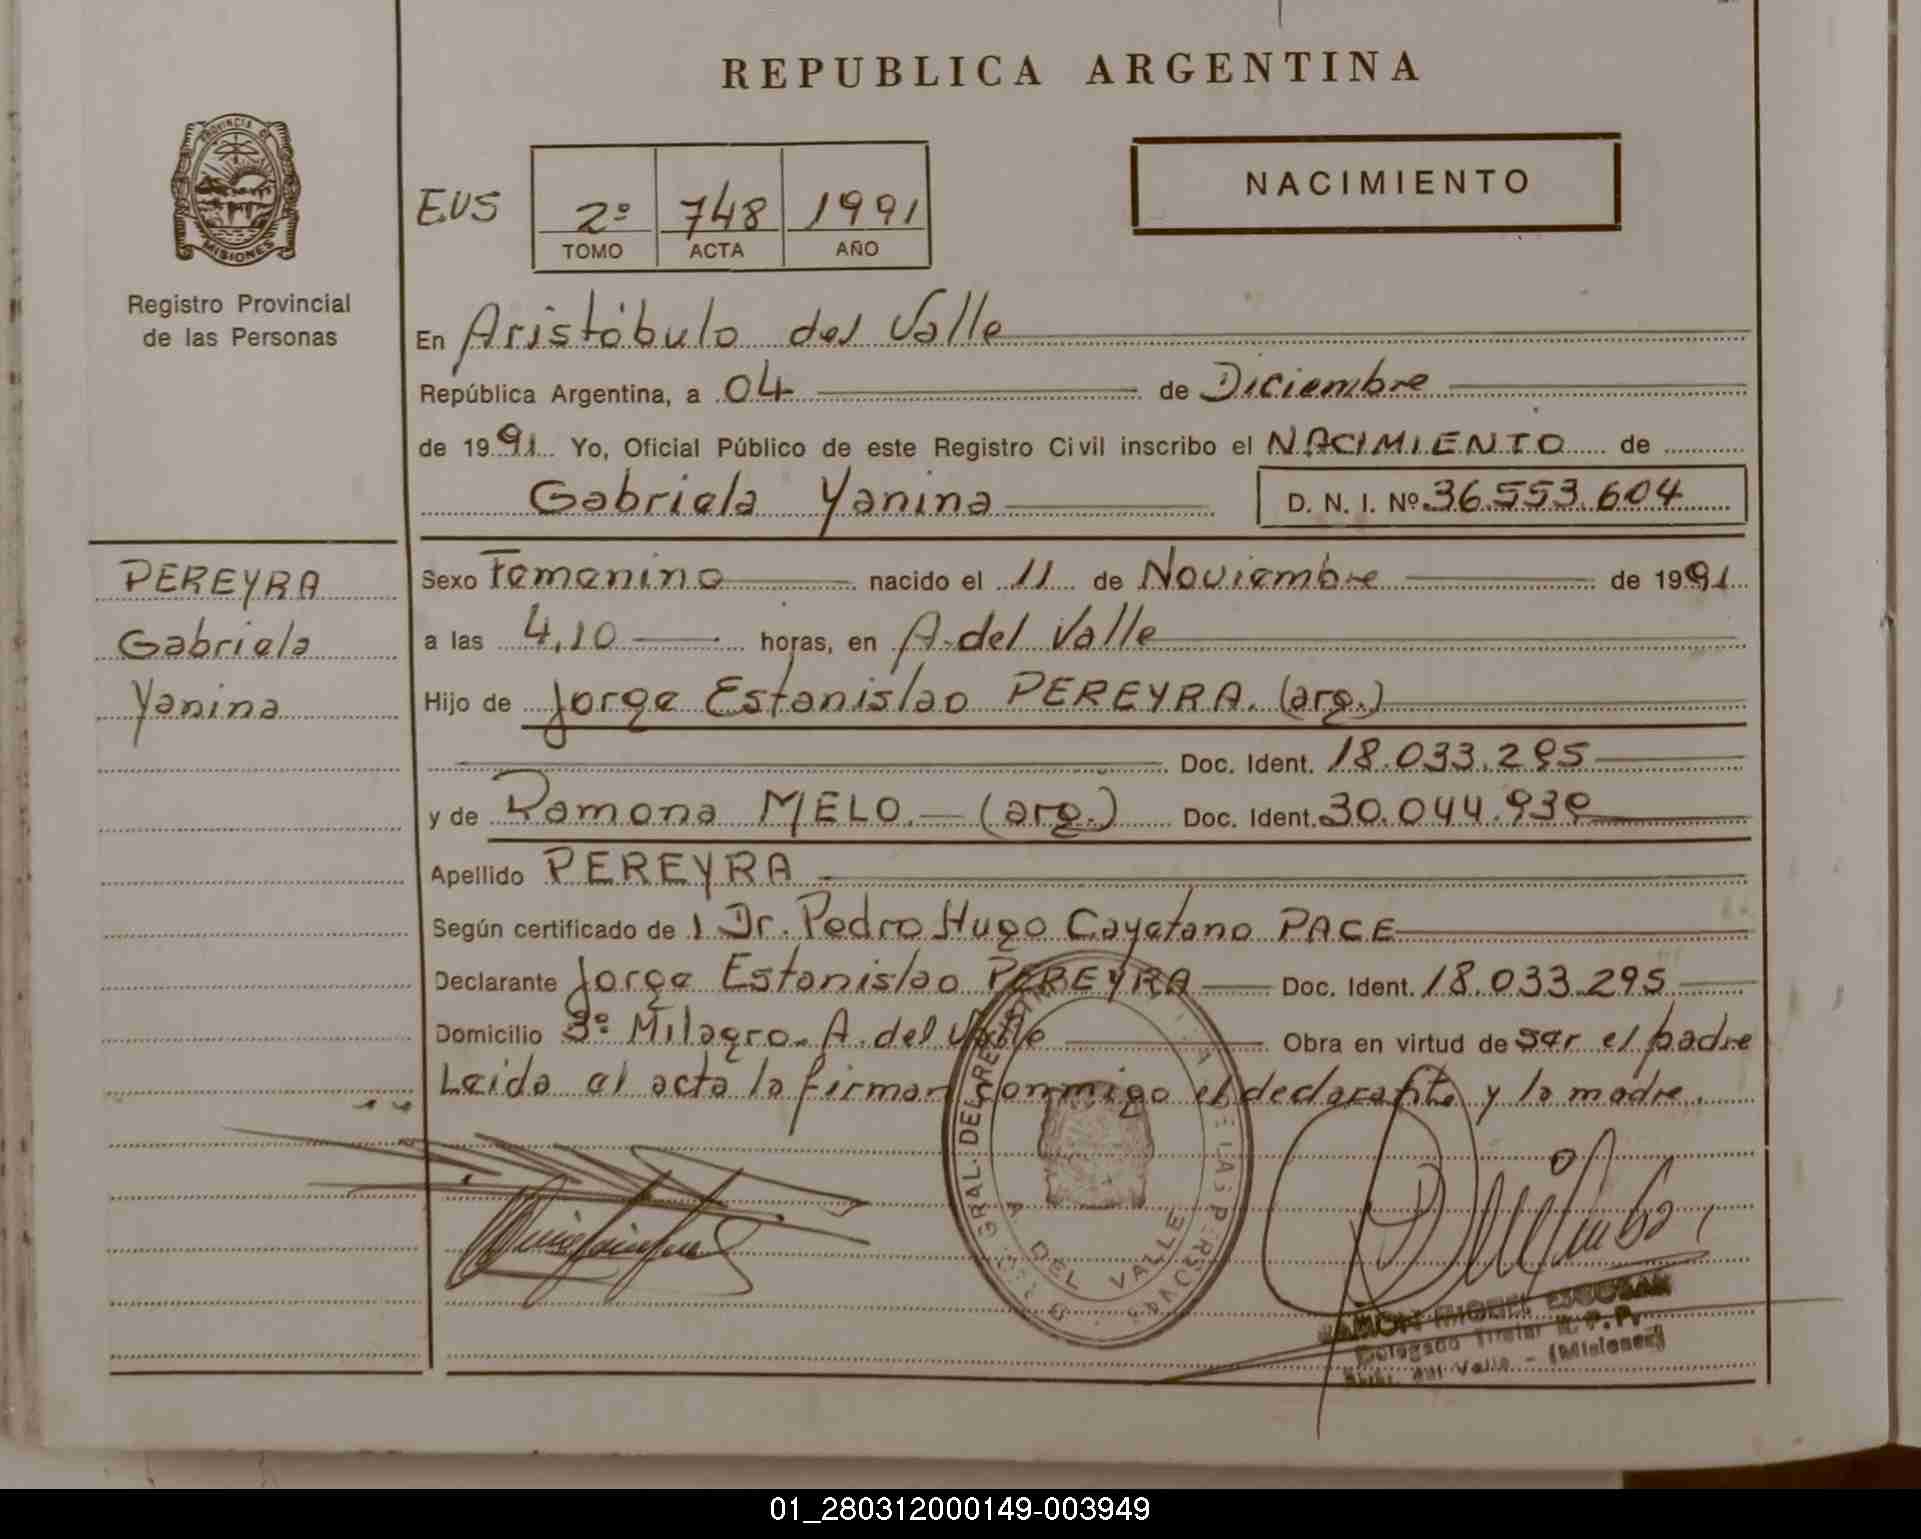 REPUBLICA ARGENTINA
PROVINCIA DE
MISIONES
Registro Provincial
de las Personas
EUS
2º 748 1991
TOMO ACTA AÑO
NACIMIENTO
En Aristóbulo del Valle
República Argentina, a 04 de Diciembre
de 1991 Yo, Oficial Público de este Registro Civil inscribo el NACIMIENTO de
Gabriela Yanina D. N. I. Nº 36.553.604
PEREYRA
Gabriela
Yanina
Sexo Femenino nacido el 11 de Noviembre de 1991
a las 4,10 horas, en A. del Valle
Hijo de Jorge Estanislao PEREYRA. (arg.)
Doc. Ident. 18.033.295
y de Ramona MELO.- (arg.) Doc. Ident. 30.044.939
Apellido PEREYRA
Según certificado de 1 Dr. Pedro Hugo Cayetano PACE
Declarante Jorge Estanislao PEREYRA Doc. Ident. 18.033.295
Domicilio 3º Milagro. A. del Valle Obra en virtud de ser el padre
Leida el acta la firman conmigo el declarante y la madre.
GRAL. DEL REGISTRO DE LAS PERSONAS
A. DEL VALLE
RAMON MIGUEL ESCOBAR
Delegado Titular R. P. P.
Arist. del Valle - (Misiones)
01_280312000149-003949